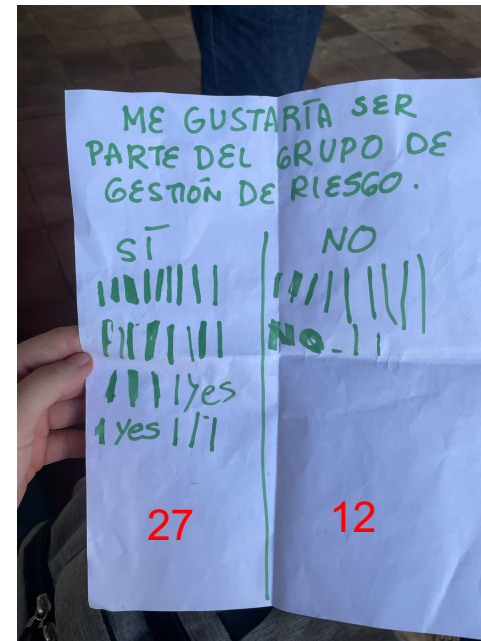 ME GUSTARÍA SER
PARTE DEL GRUPO DE
GESTIÓN DE RIESGO.
SÍ
NO
NO
Yes
yes
27
12